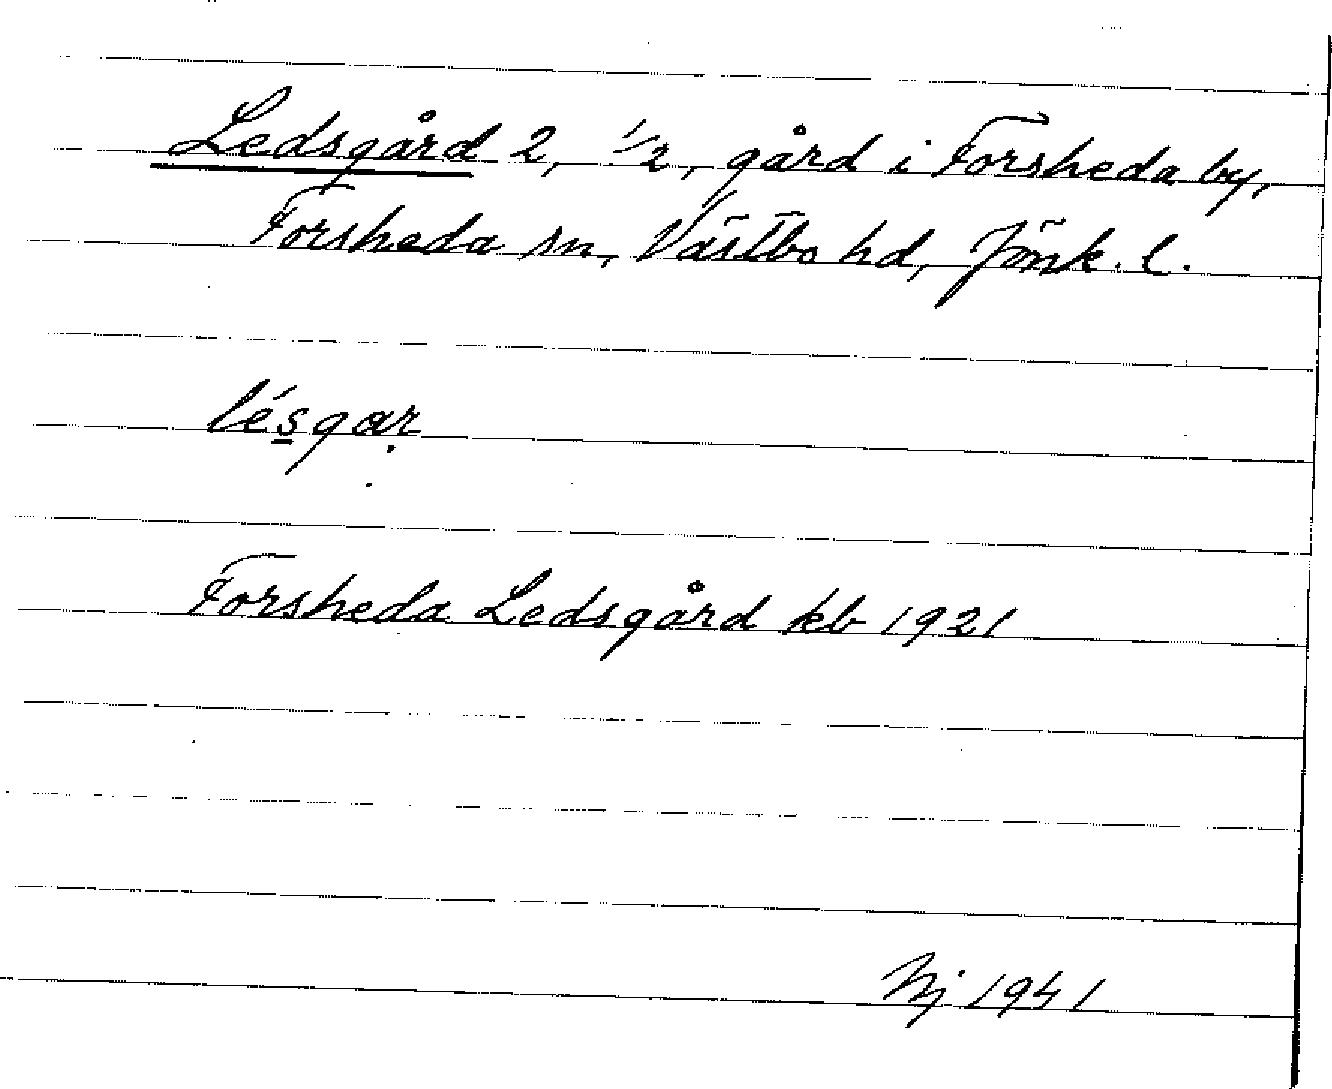 Ledsgård 2, 1/2, gård i Forsheda by,
Forsheda sn, Västbo hd, Jönk. l.
lésgaṛ
Forsheda Ledsgård kb 1921
Nj 1941